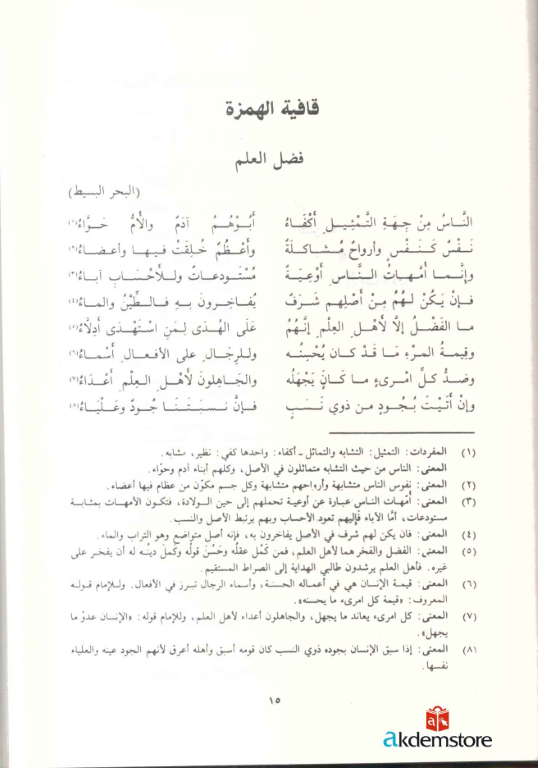 قافية الهمزة
فضل العلم
(البحر البسيط)
النَّاسُ مِنْ جِهَةِ التَّمْثِيلِ أَكْفَاءُ أَبُوهُمُ آدَمٌ وَالأُمُّ حَوَّاءُ(١)
نَفْسٌ كَنَفْسٍ وأرواحٌ مُشَاكَلَةٌ وَأَعْظُمٌ خُلِقَتْ فيها وأعضاءُ(٢)
وَإِنَّما أُمَّهاتُ النَّاسِ أَوْعِيَةٌ مُسْتَودَعاتٌ وللأَحْسَابِ آباءُ(٣)
فَإِنْ يَكُنْ لَهُمُ مِنْ أَصْلِهِمِ شَرَفٌ يُفَاخِرونَ بِهِ فَالطِّيْنُ والماءُ(٤)
ما الفَضْلُ إِلَّا لأَهْلِ العِلْمِ إِنَّهُمُ عَلَى الْهُدَى لِمَنِ اسْتَهْدَى أَدِلَّاءُ(٥)
وقِيمَةُ المرْءِ مَا قَدْ كان يُحْسِنُه وللرِجَالِ على الأفعالِ أَسْمَاءُ(٦)
وضِدُّ كلِّ امْرىءٍ ما كَانَ يَجْهَلُه والجَاهِلونَ لأَهْلِ العِلْمِ أَعْدَاءُ(٧)
وإنْ أَتَيْتَ بِجُودٍ من ذوي نَسَبٍ فَإِنَّ نِسبَتَنَا جُودٌ وَعَلْيَاءُ(٨)
(١) المفردات: التمثيل: التشابه والتماثل ـ أكفاء: واحدها كفي: نظير، مشابه.
المعنى: الناس من حيث التشابه متماثلون في الأصل، وكلهم أبناء آدم وحوّاء.
(٢) المعنى: نفوس الناس متشابهة وأرواحهم متشابهة وكل جسم مكوّن من عظام فيها أعضاء.
(٣) المعنى: أمّهات الناس عبارة عن أوعية تحملهم إلى حين الولادة، فتكون الأمهات بمثابة
مستودعات، أمّا الآباء فإليهم تعود الأحساب وبهم يرتبط الأصل والنسب.
(٤) المعنى: فان يكن لهم شرف في الأصل يفاخرون به، فإنه أصل متواضع وهو التراب والماء.
(٥) المعنى: الفضل والفخر هما لأهل العلم، فمن كَمُل عقلُه وحَسُنَ قولُه وكَملَ دينُه له أن يفخر على
غيره. فأهل العلم يرشدون طالبي الهداية إلى الصراط المستقيم.
(٦) المعنى: قيمة الإنسان هي في أعماله الحسنة، وأسماء الرجال تبرز في الأفعال. وللإمام قوله
المعروف: «قيمة كل امرىء ما يحسنه».
(٧) المعنى: كل امرىء يعاند ما يجهل، والجاهلون أعداء لأهل العلم، وللإمام قوله: «الإنسان عدوّ ما
يجهل».
(٨) المعنى: إذا سبق الإنسان بجوده ذوي النسب كان قومه أسبق وأهله أعرق لأنهم الجود عينه والعلياء
نفسها.
١٥
akdemstore